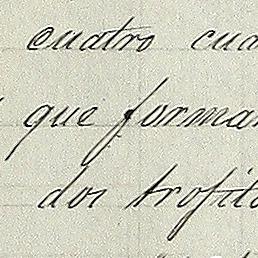 cuatro cua
que forman
dos trofito